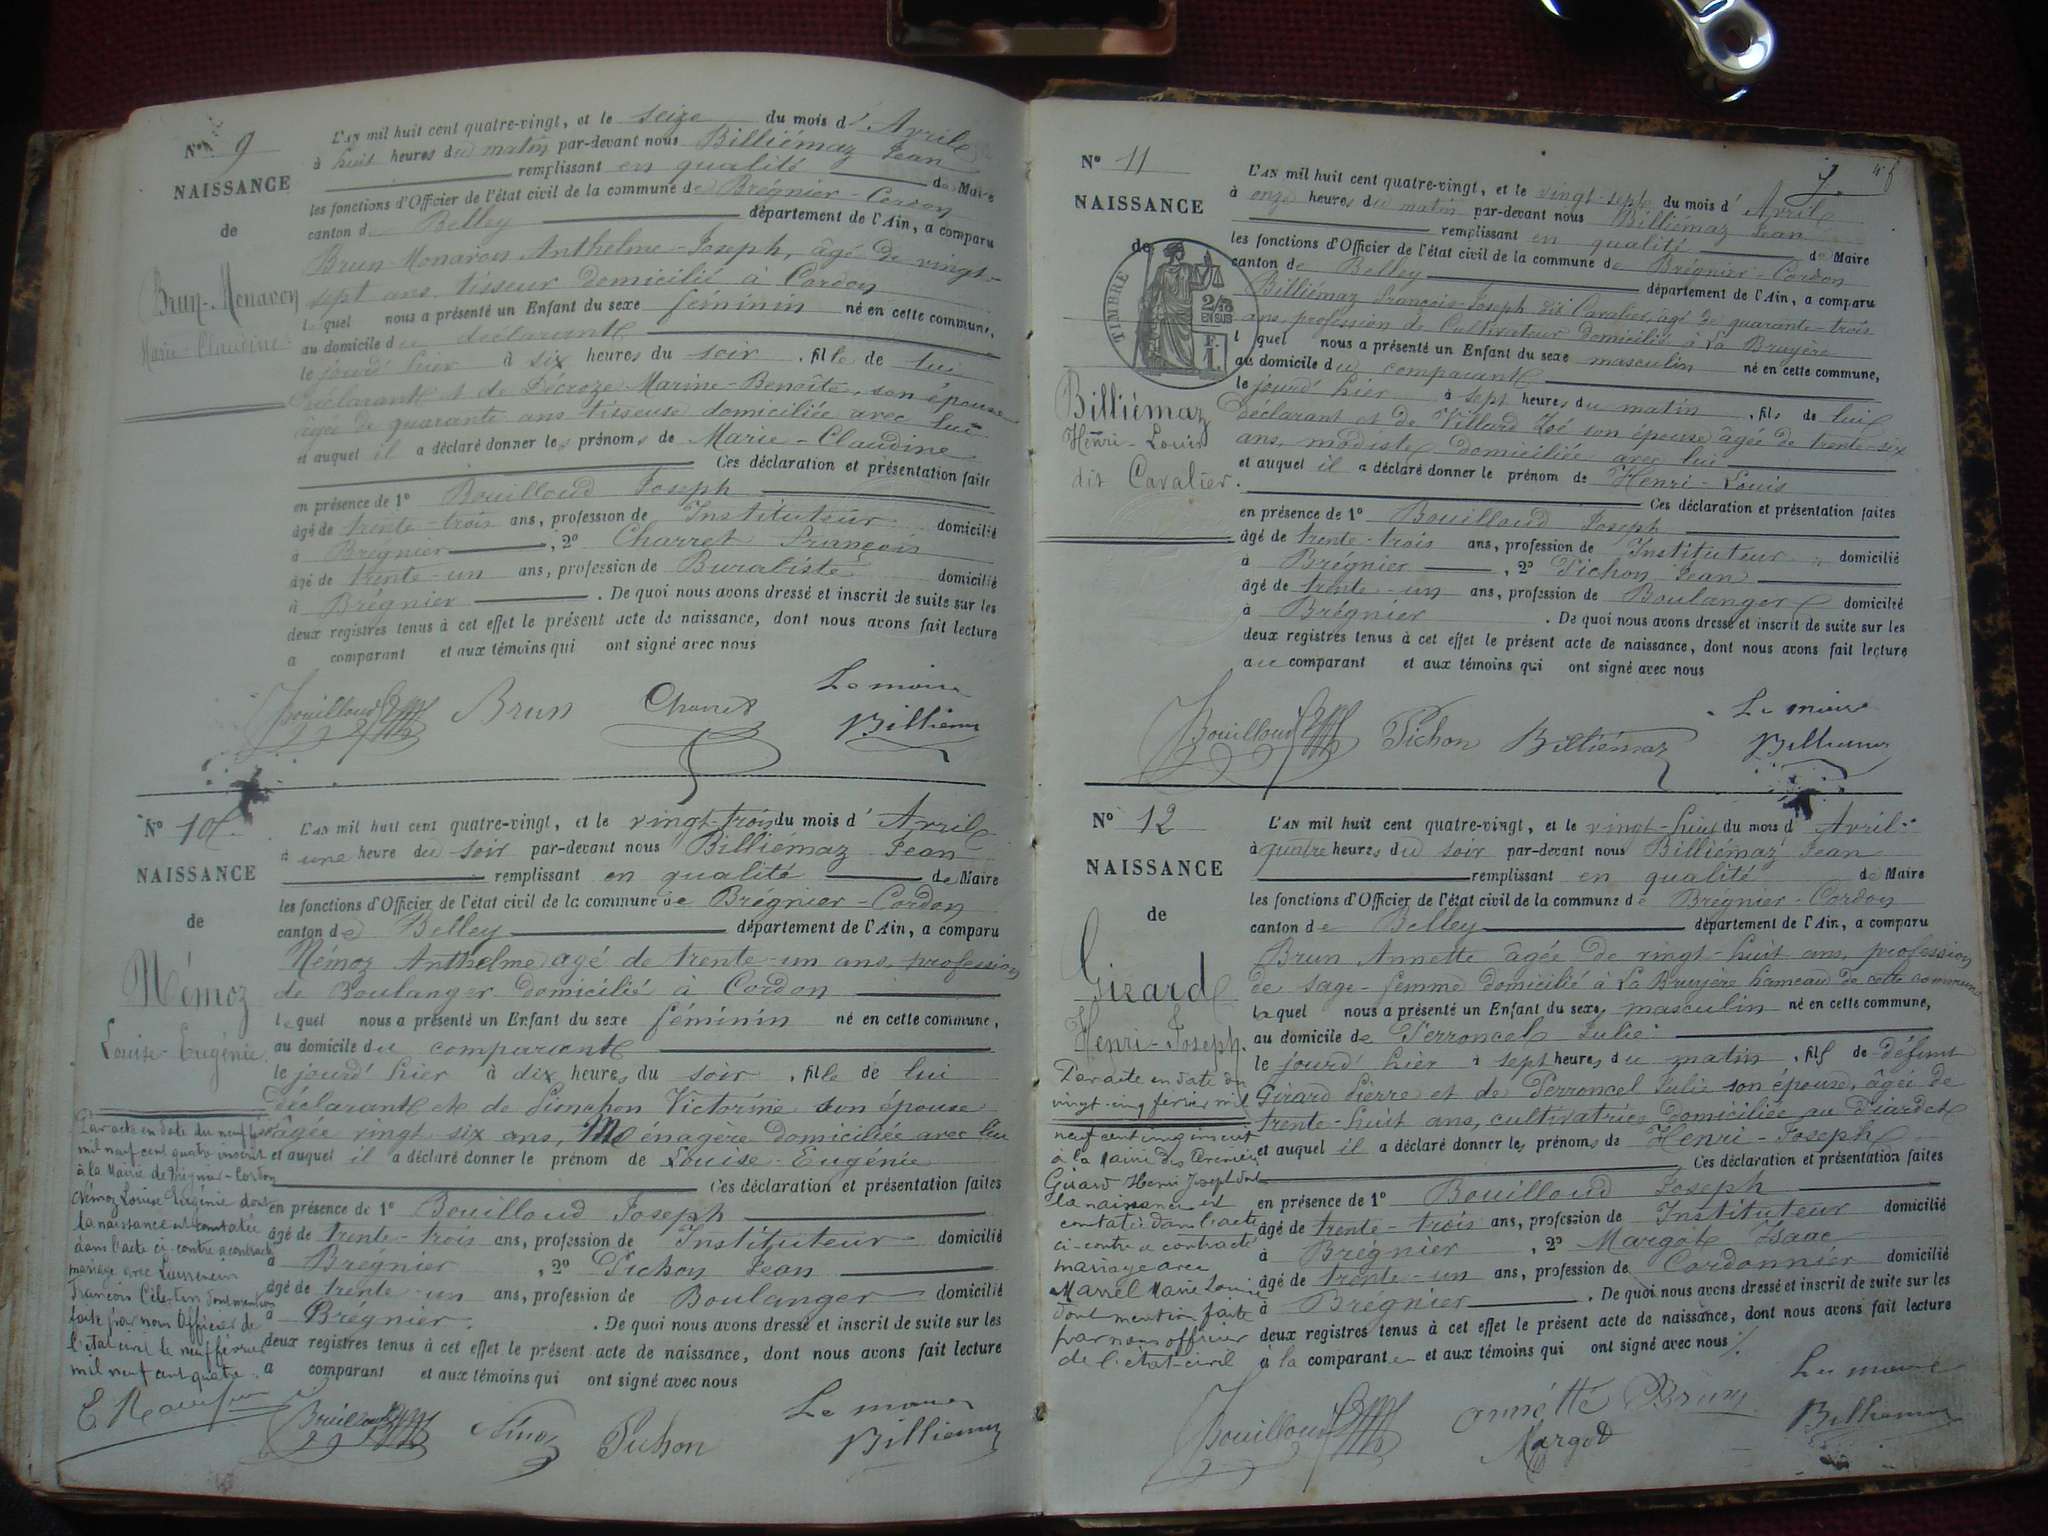 N° 9
NAISSANCE
de
Brun-Monavon
Marie-Claudine
L'AN mil huit cent quatre-vingt, et le seize du mois d'Avril
à huit heures du matin par-devant nous Billiémaz Jean
remplissant en qualité de Maire
les fonctions d'Officier de l'état civil de la commune de Brégnier-Cordon
canton de Belley département de l'Ain, a comparu
Brun-Monavon Anthelme-Joseph, âgé de vingt-
sept ans, tisseur domicilié à Cordon
lequel nous a présenté un Enfant du sexe féminin né en cette commune,
au domicile du déclarant
le jourd'hier à six heures du soir, fille de lui
déclarant et de Decroze Marine-Benoîte, son épouse
âgée de quarante ans tisseuse domiciliée avec lui
et auquel il a déclaré donner les prénoms de Marie-Claudine
Ces déclaration et présentation faites
en présence de 1° Bouilloud Joseph
âgé de trente-trois ans, profession de Instituteur domicilié
à Brégnier, 2° Charret François
âgé de trente-un ans, profession de Buraliste domicilié
à Brégnier. De quoi nous avons dressé et inscrit de suite sur les
deux registres tenus à cet effet le présent acte de naissance, dont nous avons fait lecture
a comparant et aux témoins qui ont signé avec nous
Le maire
Bouilloud Brun Charret Billiemaz
N° 10
NAISSANCE
de
Némoz
Louise-Eugénie
L'AN mil huit cent quatre-vingt, et le vingt-trois du mois d'Avril
à une heure du soir par-devant nous Billiémaz Jean
remplissant en qualité de Maire
les fonctions d'Officier de l'état civil de la commune de Brégnier-Cordon
canton de Belley département de l'Ain, a comparu
Némoz Anthelme agé de trente-un ans, profession
de Boulanger domicilié à Cordon
lequel nous a présenté un Enfant du sexe féminin né en cette commune,
au domicile du comparant
le jourd'hier à dix heures du soir, fille de lui
déclarant et de Victorine son épouse
âgée vingt six ans, Ménagère domiciliée avec lui
et auquel il a déclaré donner le prénom de Louise-Eugénie
Ces déclaration et présentation faites
en présence de 1° Bouilloud Joseph
âgé de trente-trois ans, profession de Instituteur domicilié
à Brégnier, 2° Pichon Jean
âgé de trente-un ans, profession de Boulanger domicilié
à Brégnier. De quoi nous avons dressé et inscrit de suite sur les
deux registres tenus à cet effet le présent acte de naissance, dont nous avons fait lecture
a comparant et aux témoins qui ont signé avec nous
Par acte en date du neuf
mil neuf cent quatre inscrit
à la Mairie de Brégnier-Cordon
Némoz Louise Eugénie dont
la naissance est constatée
dans l'acte ci-contre a contracté
mariage avec
François Célestin dont mention
faite par nous Officier de
l'état civil le neuf février
mil neuf cent quatre.
Le maire
Bouilloud Némoz Pichon Billiemaz
N° 11
NAISSANCE
de
TIMBRE
2/10 EN SUS
F. 1.
Billiémaz
Henri-Louis
dit Cavalier.
L'AN mil huit cent quatre-vingt, et le vingt-sept du mois d'Avril
à onze heures du matin par-devant nous Billiémaz Jean
remplissant en qualité de Maire
les fonctions d'Officier de l'état civil de la commune de Brégnier-Cordon
canton de Belley département de l'Ain, a comparu
Billiémaz François-Joseph dit Cavalier, agé de quarante-trois
ans, profession de Cultivateur domicilié à La Bruyère
lequel nous a présenté un Enfant du sexe masculin né en cette commune,
au domicile du comparant
le jourd'hier à sept heures du matin, fils de lui
déclarant et de Villard Zoé son épouse âgée de trente-six
ans, modiste domiciliée avec lui
et auquel il a déclaré donner le prénom de Henri-Louis
Ces déclaration et présentation faites
en présence de 1° Bouilloud Joseph
âgé de trente-trois ans, profession de Instituteur domicilié
à Brégnier, 2° Pichon Jean
âgé de trente-un ans, profession de Boulanger domicilié
à Brégnier. De quoi nous avons dressé et inscrit de suite sur les
deux registres tenus à cet effet le présent acte de naissance, dont nous avons fait lecture
au comparant et aux témoins qui ont signé avec nous
Le maire
Bouilloud Pichon Billiémaz Billiemaz
N° 12
NAISSANCE
de
Girard
Henri-Joseph.
L'AN mil huit cent quatre-vingt, et le vingt-huit du mois d'Avril
à quatre heures du soir par-devant nous Billiémaz Jean
remplissant en qualité de Maire
les fonctions d'Officier de l'état civil de la commune de Brégnier-Cordon
canton de Belley département de l'Ain, a comparu
Brun Annette âgée de vingt-huit ans, profession
de sage-femme domicilié à La Bruyère hameau de cette commune
laquel nous a présenté un Enfant du sexe masculin né en cette commune,
au domicile de Perroncel Julie
le jourd'hier à sept heures du matin, fils de défunt
Girard Pierre et de Perroncel Julie son épouse, âgée de
trente-huit ans, cultivatrice domiciliée au
et auquel il a déclaré donner les prénoms de Henri-Joseph
Ces déclaration et présentation faites
en présence de 1° Bouilloud Joseph
âgé de trente-trois ans, profession de Instituteur domicilié
à Brégnier, 2° Margot Isaac
âgé de trente-un ans, profession de Cordonnier domicilié
à Brégnier. De quoi nous avons dressé et inscrit de suite sur les
deux registres tenus à cet effet le présent acte de naissance, dont nous avons fait lecture
à la comparante et aux témoins qui ont signé avec nous
Par acte en date du
vingt-cinq février mil
neuf cent cinq inscrit
à la Mairie des
Girard Henri Joseph dont
la naissance est
constatée dans l'acte
ci-contre a contracté
mariage avec
Marrel Marie Louise
dont mention faite
par nous officier
de l'état-civil
Le maire
Bouilloud Annette Brun Billiemaz
Margot